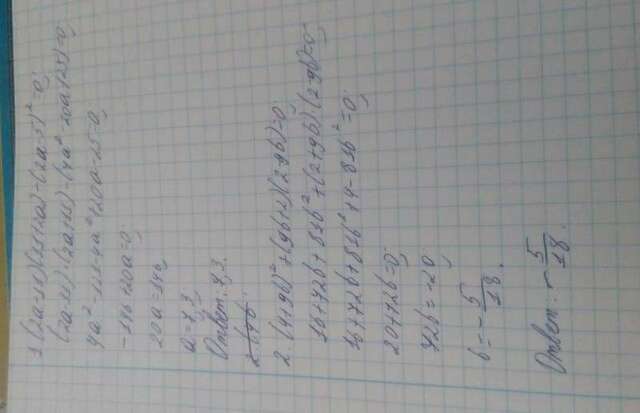 1. (2a-11)(11+2a)-(2a-5)²=0;
(2a-11)·(2a+11)-(4a²-20a+25)=0;
4a²-121-4a²+20a-25=0;
-146+20a=0;
20a=146;
a=7,3.
Ответ: 7,3.
2. (4+9b)²+(9b+2)(2-9b)=0;
16+72b+81b²+(2+9b)·(2-9b)=0;
16+72b+81b²+4-81b²=0;
20+72b=0;
72b=-20
b=-5/18.
Ответ: -5/18.